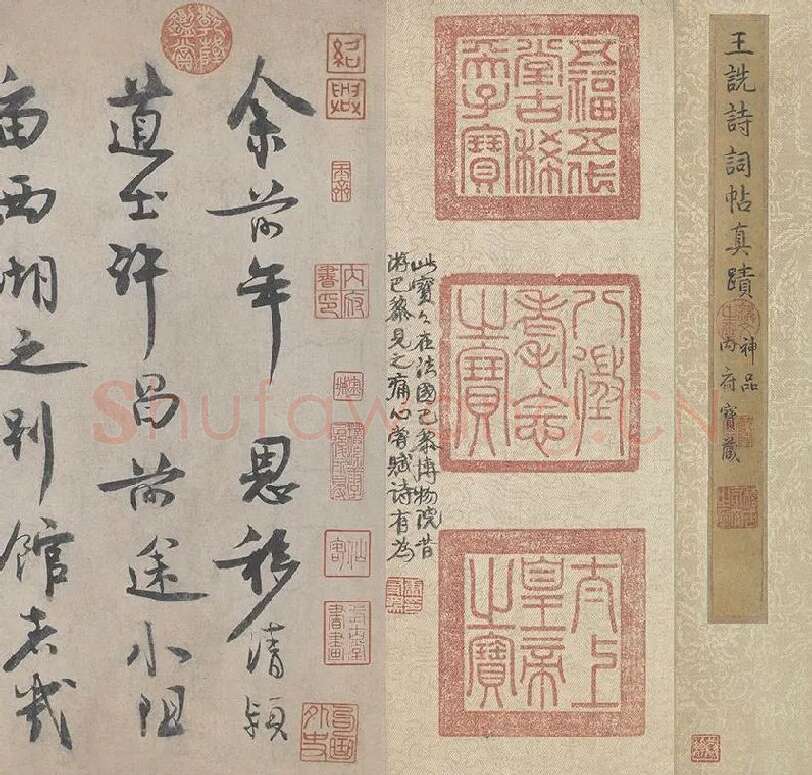 王詵詩詞帖真蹟
神品
内府寶藏
五福五代
堂古稀
天子寶
八徵
耄念
之寶
太上
皇帝
之寶
此寶今在法國巴黎博物院昔
游巴黎見之痛心嘗賦詩有為
紹興
内府書印
乾隆鑑賞
余前年恩移清潁
道士許昌前途小阻
留西湖之別館者幾
Shufawang.CN